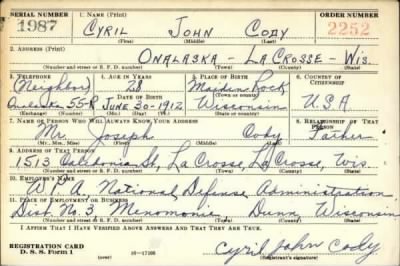 SERIAL NUMBER 1. NAME (Print) ORDER NUMBER
1987 CYRIL JOHN CODY 2252
(First) (Middle) (Last)
2. ADDRESS (Print)
ONALASKA - LA CROSSE - WIS.
(Number and street or R. F. D. number) (Town) (County) (State)
3. TELEPHONE 4. AGE IN YEARS 5. PLACE OF BIRTH 6. COUNTRY OF CITIZENSHIP
(Neighbor) 28 Maiden Rock
DATE OF BIRTH
Onalaska 55-R JUNE-30-1912 Wisconsin U.S.A
(Exchange) (Number) (Mo.) (Day) (Yr.) (State or country)
7. NAME OF PERSON WHO WILL ALWAYS KNOW YOUR ADDRESS 8. RELATIONSHIP OF THAT PERSON
Mr. Joseph Cody Father
(Mr., Mrs., Miss) (First) (Middle) (Last)
9. ADDRESS OF THAT PERSON
1513 Caledonia St, La Crosse, La Crosse, Wis.
(Number and street or R. F. D. number) (Town) (County) (State)
10. EMPLOYER'S NAME
W.P.A., National Defense Administration
11. PLACE OF EMPLOYMENT OR BUSINESS
Dist. No. 3 Menomonie, Dunn, Wisconsin
(Number and street or R. F. D. number) (Town) (County) (State)
I AFFIRM THAT I HAVE VERIFIED ABOVE ANSWERS AND THAT THEY ARE TRUE.
REGISTRATION CARD
D. S. S. Form 1 16-17105 Cyril John Cody
(Registrant's signature)